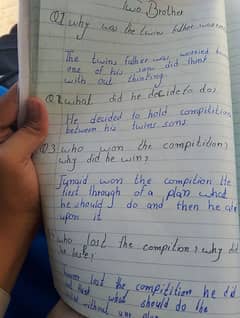 Two Brother
Q1 why was the twins father worried
The twins father was worried
one of his sons did think
with out thinking.
Q2 what did he decide to do,
He decided to hold compitition
between his twins sons.
Q3 who won the compatition,
why did he win?
Junaid won the compition He
first through of a plan what
he should do and then he
upon it
who lost the compition, why did
he lose,
lost the compitition he did
not what should do the
without